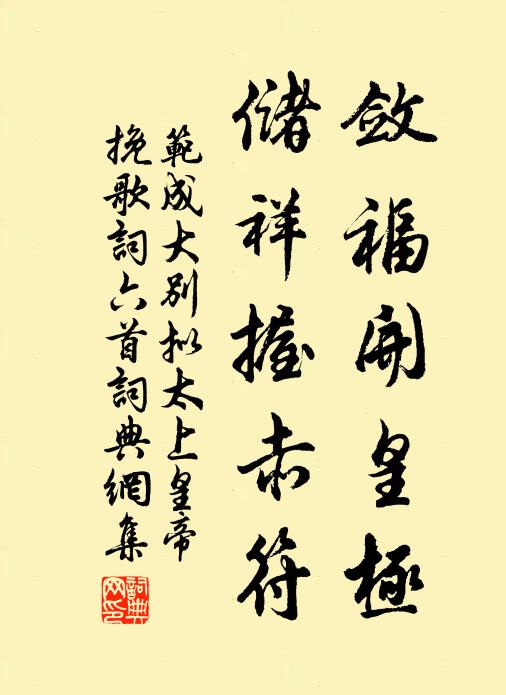 斂福開皇極
儲祥握赤符
範成大別擬太上皇帝
挽歌詞六首詞典網集
詞典網印